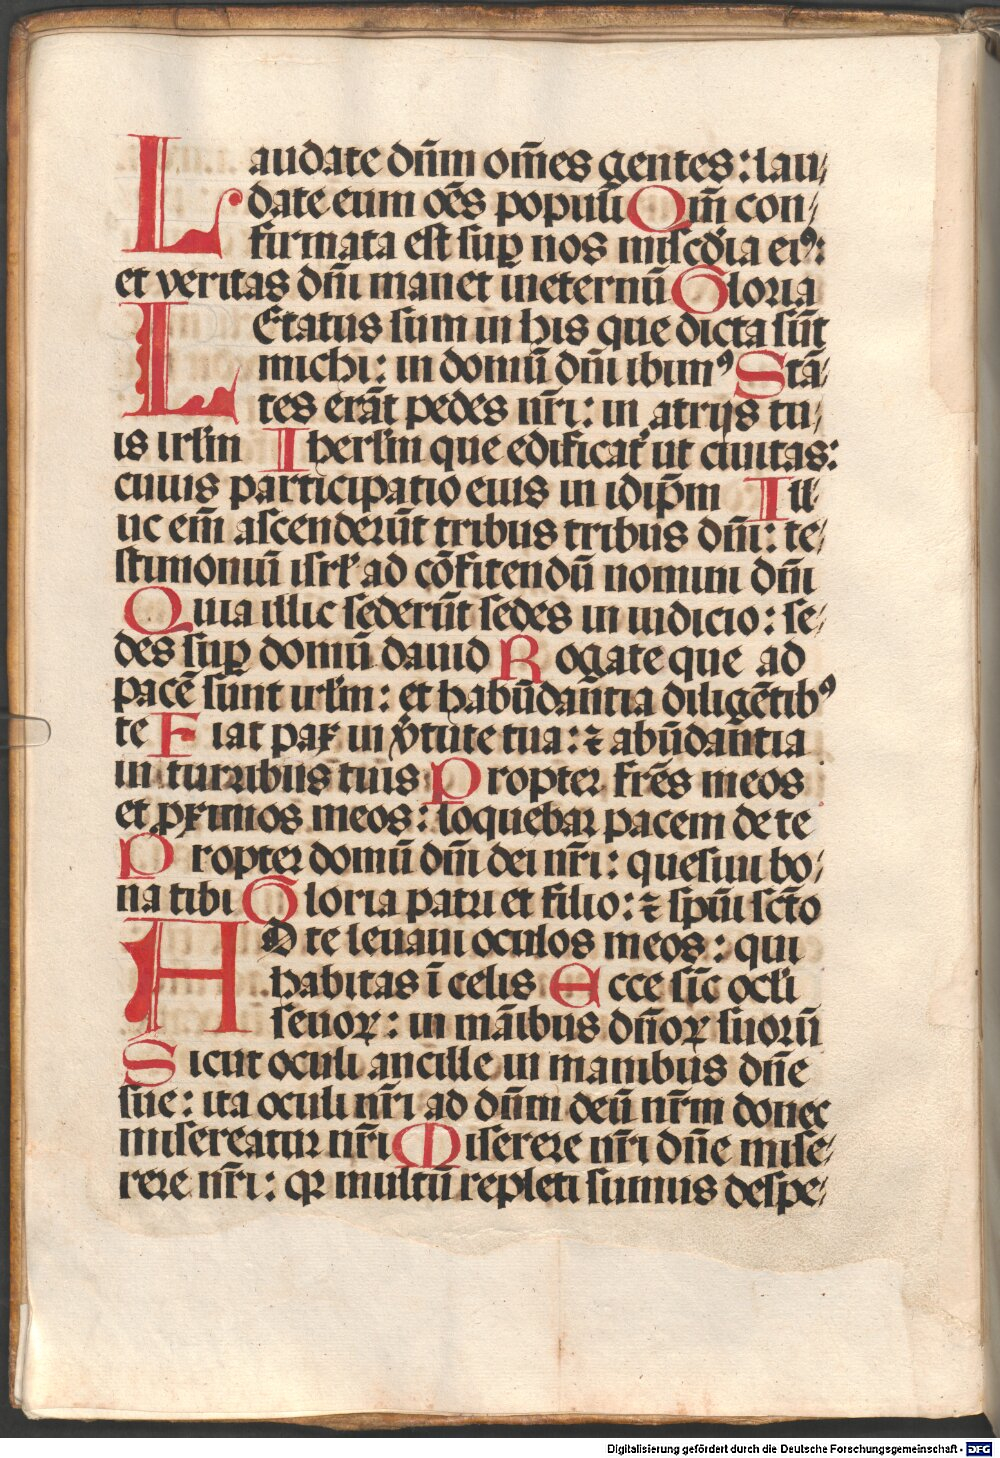 Laudate dn̄m om̄es gentes: lau/
date eum oēs populi Qm̄ con/
firmata est sup̱ nos misc̄dia eiꝰ:
et veritas dn̄i manet ineternū Gloria
LEtatus sum in his que dicta sūt
michi: in domū dn̄i ibimꝰ Stā/
tes erāt pedes nr̄i: in atrijs tu/
is irl̄m Iherl̄m que edificat᷑ ut ciuitas:
cuius participatio eius in idip̄m Ill/
uc em̄ ascenderūt tribus tribus dn̄i: te/
stimoniū isrl̄ ad cōfitendū nomini dn̄i
Quia illic sederūt sedes in iudicio: se/
des sup̱ domū dauid Rogate que ad
pacē sunt irl̄m: et habūdan̄tia diligētibꝰ
te Fiat pax in v̓tute tua: ⁊ abūdan̄tia
in turribus tuis Propter fr̄es meos
et px̱imos meos: loquebar pacem de te
Propter domū dn̄i dei nr̄i: quesiui bo/
na tibi Gloria patri et filio: ⁊ spūi sc̄to
AD te leuaui oculos meos: qui
habitas ī celis Ecce sic̄ ocl̄i
seruoꝝ: in māibus dn̄oꝝ suorū
Sicut oculi ancille in manibus dn̄e
sue: ita oculi nr̄i ad dn̄um deū nr̄m donec
misereatur nr̄i Miserere nr̄i dn̄e mise/
rere nr̄i: qꝛ multū repleti sumus despe/
Digitalisierung gefördert durch die Deutsche Forschungsgemeinschaft - DFG